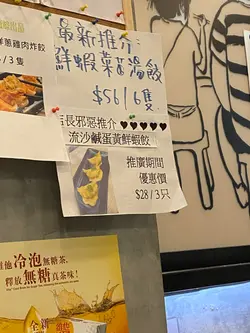 洋蔥雞肉炸餃
/3隻
最新推介
鮮蝦菜苗湯餃
$56/6隻
店長邪惡推介♥♥♥♥♥
流沙鹹蛋黃鮮蝦餃
推廣期間
優惠價
$28/3只
他冷泡無糖茶,
釋放無糖真茶味!
全新